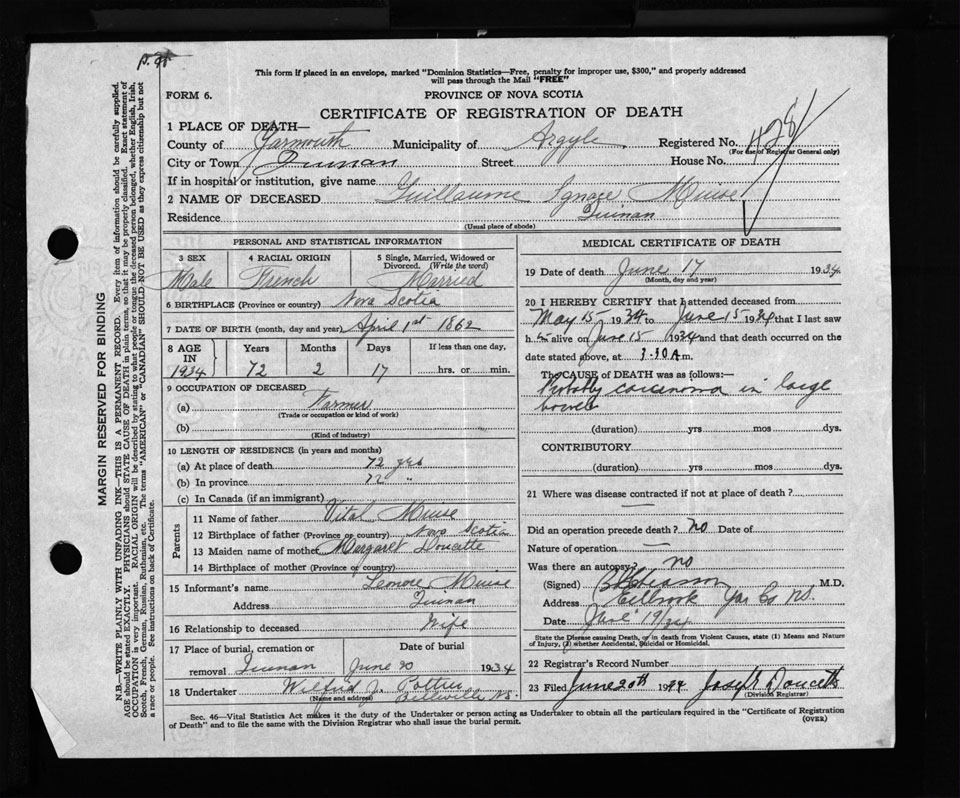 p. 98
This form if placed in an envelope, marked "Dominion Statistics—Free, penalty for improper use, $300," and properly addressed
will pass through the Mail "FREE"
FORM 6. PROVINCE OF NOVA SCOTIA
CERTIFICATE OF REGISTRATION OF DEATH
1 PLACE OF DEATH—
County of Yarmouth Municipality of Argyle Registered No. 428
(For use of Registrar General only)
City or Town Quinan Street House No.
If in hospital or institution, give name
2 NAME OF DECEASED Guillaume Ignace Muise
Residence Quinan
(Usual place of abode)
MARGIN RESERVED FOR BINDING
N.B. WRITE PLAINLY WITH UNFADING INK—THIS IS A PERMANENT RECORD. Every item of information should be carefully supplied.
AGE should be stated EXACTLY. PHYSICIANS should STATE CAUSE OF DEATH in plain terms, so that it may be properly classified. Exact statement of
OCCUPATION is very important. RACIAL ORIGIN will be described by stating to what people or tongue the deceased person belonged, whether English, Irish,
Scotch, French, German, Russian, Ruthenian, etc. The terms "AMERICAN" or "CANADIAN" SHOULD NOT BE USED as they express citizenship but not
a race or people. See instructions on back of Certificate.
PERSONAL AND STATISTICAL INFORMATION
3 SEX 4 RACIAL ORIGIN 5 Single, Married, Widowed or
Divorced. (Write the word)
Male French Married
6 BIRTHPLACE (Province or country) Nova Scotia
7 DATE OF BIRTH (month, day and year) April 1st 1862
8 AGE Years Months Days If less than one day,
IN
1934 72 2 17 hrs. or min.
9 OCCUPATION OF DECEASED
(a) Farmer
(Trade or occupation or kind of work)
(b)
(Kind of industry)
10 LENGTH OF RESIDENCE (in years and months)
(a) At place of death 72 yrs
(b) In province 72 "
(c) In Canada (if an immigrant)
Parents
11 Name of father Vital Muise
12 Birthplace of father (Province or country) Nova Scotia
13 Maiden name of mother Margaret Doucette
14 Birthplace of mother (Province or country)
15 Informant's name Leonore Muise
Address Quinan
16 Relationship to deceased Wife
17 Place of burial, cremation or Date of burial
removal Quinan June 20 1934
18 Undertaker Wilfred J. Pottier
(Name and address) Belleville N.S.
MEDICAL CERTIFICATE OF DEATH
19 Date of death June 17 1934
(Month, day and year)
20 I HEREBY CERTIFY that I attended deceased from
May 15 1934 to June 15 1934 that I last saw
h im alive on June 15 1934 and that death occurred on the
date stated above, at 3.30 A m.
The CAUSE of DEATH was as follows:—
Probably carcinoma in large
bowel
(duration) yrs mos dys.
CONTRIBUTORY
(duration) yrs mos dys.
21 Where was disease contracted if not at place of death?
Did an operation precede death? no Date of
Nature of operation —
Was there an autopsy? no
(Signed) M.D.
Address Eelbrook Yar Co N.S.
Date June 19/34
State the Disease causing Death, or in death from Violent Causes, state (1) Means and Nature
of Injury, (2) whether Accidental, Suicidal or Homicidal.
22 Registrar's Record Number
23 Filed June 20th 1934 Joseph Doucette
(Division Registrar)
Sec. 46—Vital Statistics Act makes it the duty of the Undertaker or person acting as Undertaker to obtain all the particulars required in the "Certificate of Registration
of Death" and to file the same with the Division Registrar who shall issue the burial permit. (OVER)